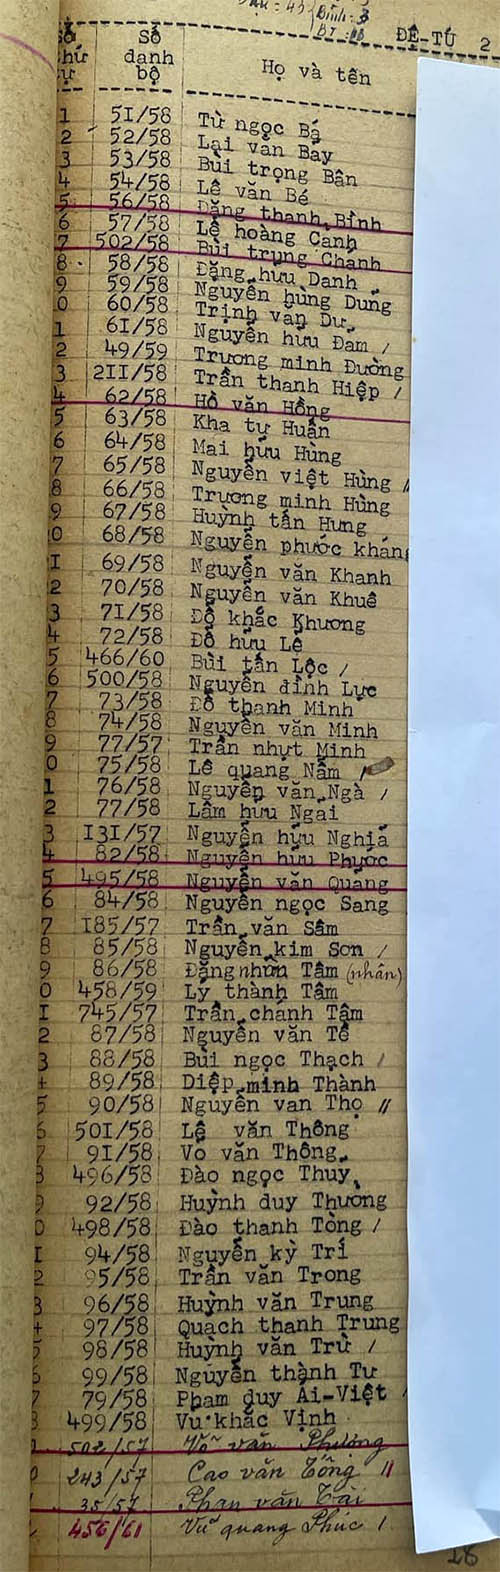 ĐỆ-TỨ 2
Số thứ tự Số danh bộ Họ và tên
1 51/58 Từ ngọc Bá
2 52/58 Lại văn Bay
3 53/58 Bùi trọng Bân
4 54/58 Lê văn Bé
5 56/58 Đặng thanh Bình
6 57/58 Lê hoàng Cảnh
7 502/58 Bùi trung Chánh
8 58/58 Đặng hữu Danh
9 59/58 Nguyễn hùng Dung
0 60/58 Trịnh văn Dư
1 61/58 Nguyễn hữu Đam /
2 49/59 Trương minh Đường
3 211/58 Trần thanh Hiệp /
4 62/58 Hồ văn Hồng
5 63/58 Kha tự Huấn
6 64/58 Mai hữu Hùng
7 65/58 Nguyễn việt Hùng //
8 66/58 Trương minh Hùng
9 67/58 Huỳnh tấn Hưng
0 68/58 Nguyễn phước kháng
1 69/58 Nguyễn văn Khanh
2 70/58 Nguyễn văn Khuê
3 71/58 Đỗ khắc Khương
4 72/58 Đỗ hữu Lê
5 466/60 Bùi tấn Lộc /
6 500/58 Nguyễn đình Lực
7 73/58 Đỗ thanh Minh
8 74/58 Nguyễn văn Minh
9 77/57 Trần nhựt Minh
0 75/58 Lê quang Năm /
1 76/58 Nguyễn văn Ngà /
2 77/58 Lâm hữu Ngai
3 131/57 Nguyễn hữu Nghiã
4 82/58 Nguyễn hữu Phước
5 495/58 Nguyễn văn Quang
6 84/58 Nguyễn ngọc Sang
7 185/57 Trần văn Sâm
8 85/58 Nguyễn kim Sơn /
9 86/58 Đặng nhữn Tâm (nhân)
0 458/59 Lý thành Tâm
1 745/57 Trần chánh Tâm
2 87/58 Nguyễn văn Tề
3 88/58 Bùi ngọc Thạch /
4 89/58 Diệp minh Thành
5 90/58 Nguyễn van Thọ //
6 501/58 Lê văn Thông
7 91/58 Vo văn Thông
8 496/58 Đào ngọc Thuy
9 92/58 Huỳnh duy Thường
0 498/58 Đào thanh Tòng /
1 94/58 Nguyễn kỳ Trí
2 95/58 Trần văn Trong
3 96/58 Huỳnh văn Trung
4 97/58 Quach thanh Trung
5 98/58 Huỳnh văn Trừ /
6 99/58 Nguyễn thành Tư
7 79/58 Phạm duy Ái-Việt /
8 499/58 Vu khắc Vịnh
502/57 Võ văn Phượng
0 243/57 Cao văn Tổng //
35/57 Phan văn Tài
456/61 Vũ quang Phúc /
28